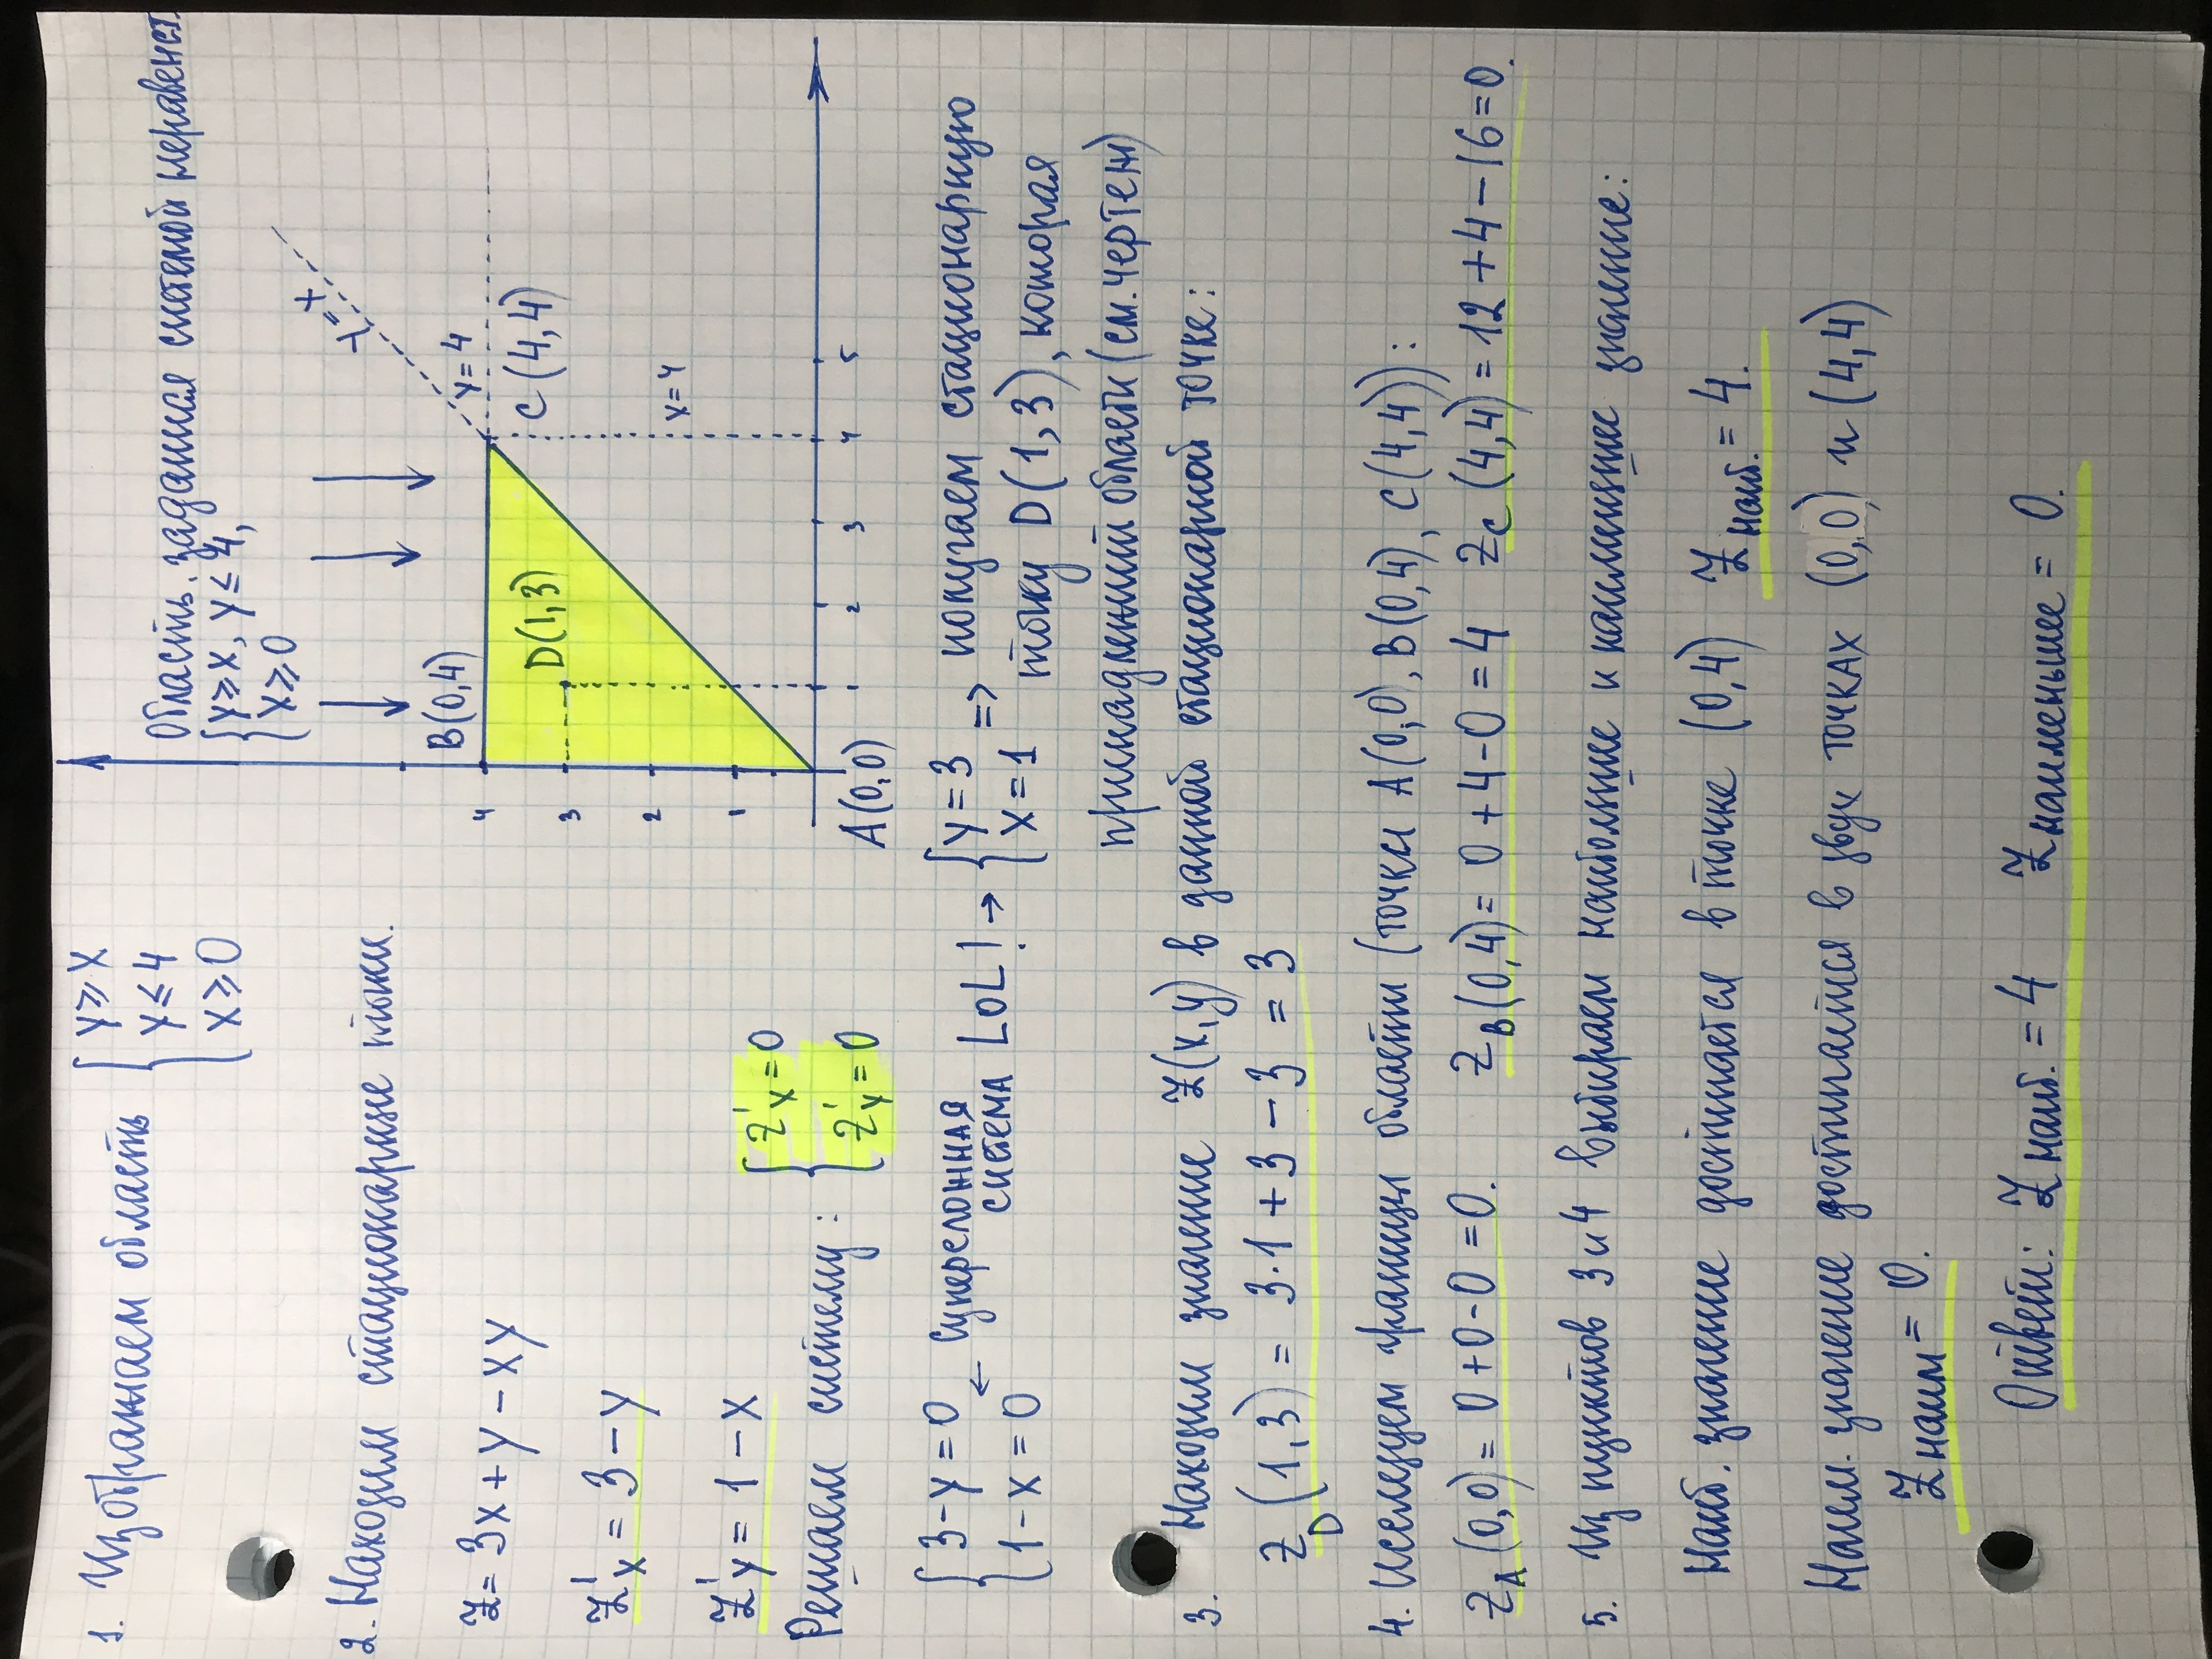 1. Изображаем область { y ≥ x
y ≤ 4
x ≥ 0
Область, заданная системой неравенст
{ y ≥ x, y ≤ 4,
x ≥ 0
y = x
B(0,4)
y = 4
C(4,4)
D(1,3)
x = 4
4
3
2
1
A(0,0)
1 2 3 4 5
2. Находим стационарные точки.
z = 3x + y - xy
z'x = 3 - y
z'y = 1 - x
Решаем систему: { z'x = 0
z'y = 0
{ 3 - y = 0 ← Суперсложная { y = 3 => получаем стационарную
1 - x = 0 система LOL! → x = 1 точку D(1,3), которая
принадлежит области (см. чертеж)
3. Находим значение z(x,y) в данной стационарной точке:
z_D(1,3) = 3·1 + 3 - 3 = 3
4. Исследуем границы области (точки A(0,0), B(0,4), C(4,4)):
z_A(0,0) = 0 + 0 - 0 = 0. z_B(0,4) = 0 + 4 - 0 = 4 z_C(4,4) = 12 + 4 - 16 = 0.
5. Из пунктов 3 и 4 выбираем наибольшее и наименьшее значение:
Наиб. значение достигается в точке (0,4) z наиб. = 4.
Наим. значение достигается в двух точках (0,0) и (4,4)
z наим = 0.
Ответ: z наиб. = 4 z наименьшее = 0.